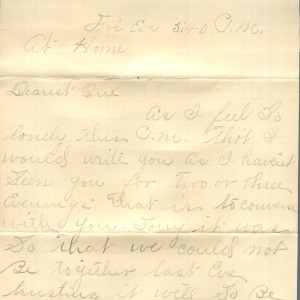 Fri Eve 5:40 P.M.
At Home
Dearest One
As I feel so
lonely this P.M. Thot I
would write you as I havent
Seen you for two or three
evenings that is to converse
with you. Sorry it was
So that we could not
Be together last Eve
trusting it will So Be